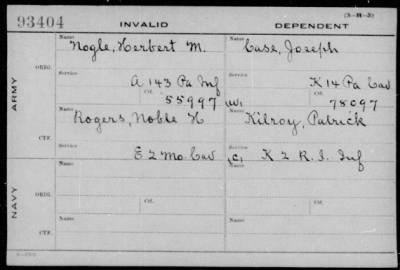 93404
INVALID
DEPENDENT
(3-M-3)
ARMY
ORIG.
Name
Nogle, Herbert M.
Name
Case, Joseph
Service
A 143 Pa Inf
Service
K 14 Pa Cav
Ctf.
55997
(W)
Ctf.
78097
CTF.
Name
Rogers, Noble H
Name
Kilroy, Patrick
Service
E 2 Mo. Cav
Service
(C) K 2 R. I. Inf
NAVY
ORIG.
Name
Ctf.
Name
Ctf.
CTF.
Name
Name